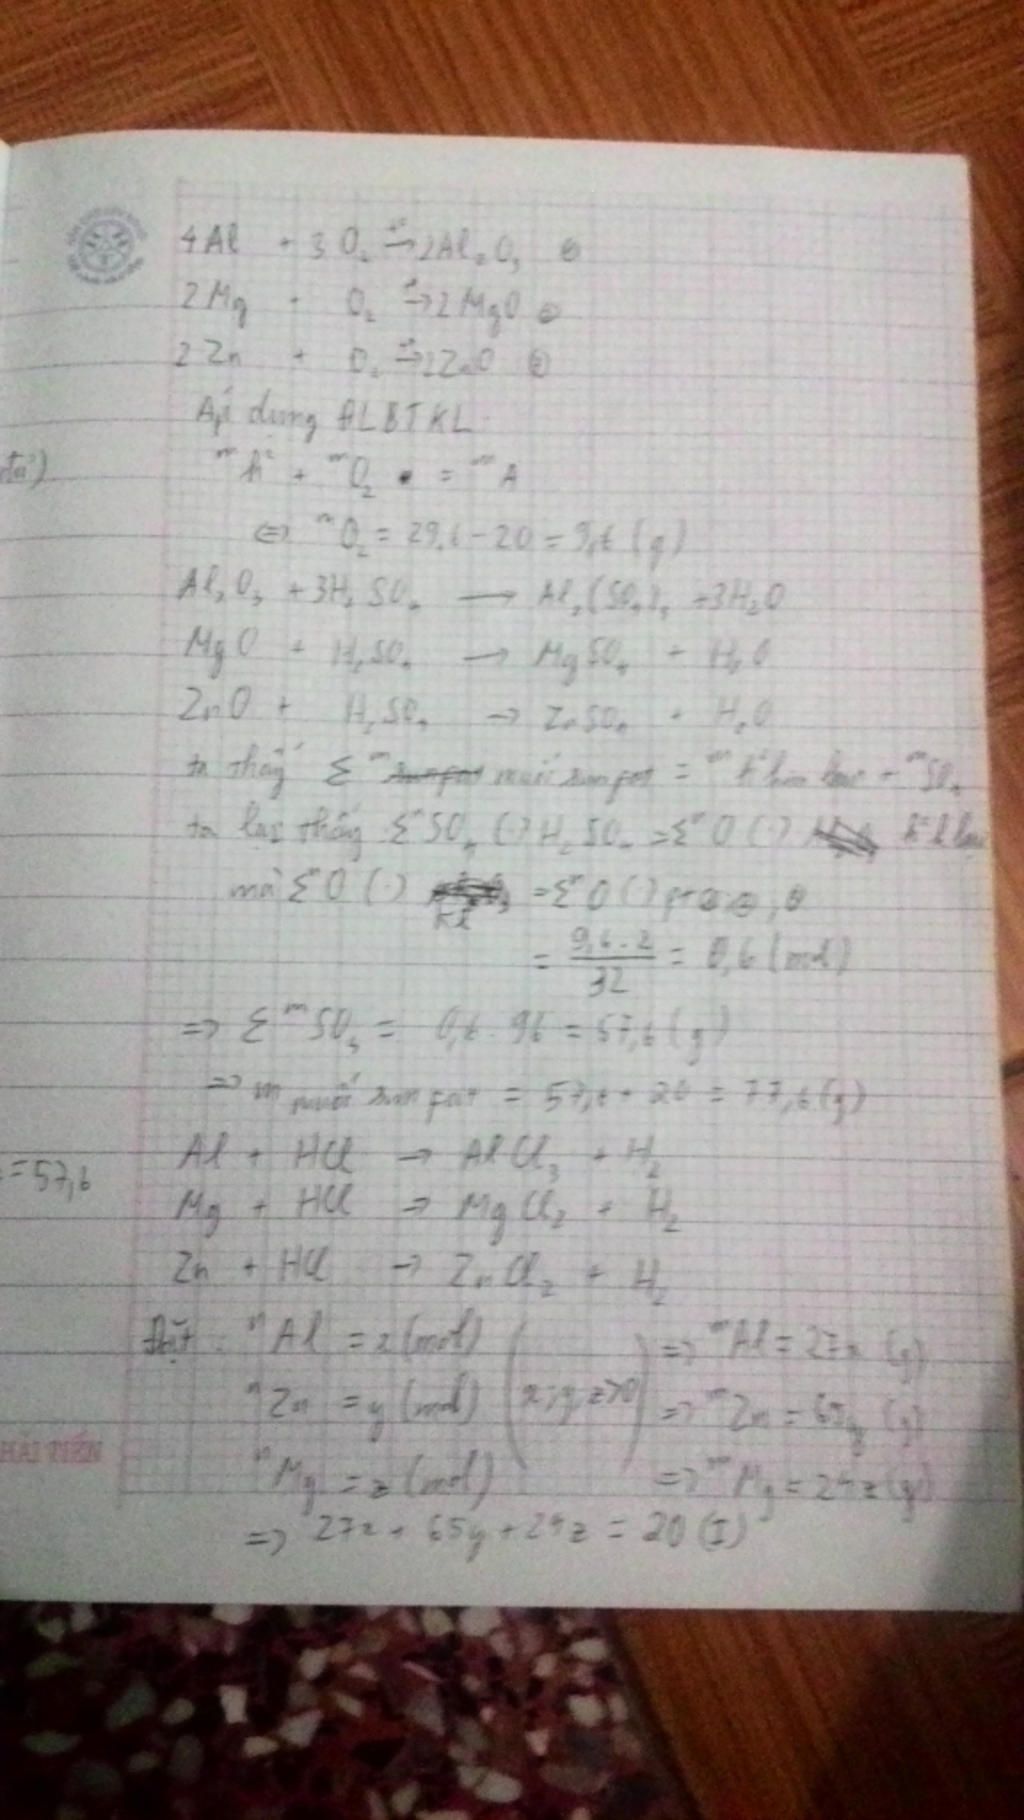 4Al + 3O₂ →t° 2Al₂O₃ ①
2Mg + O₂ →t° 2MgO ②
2Zn + O₂ →t° 2ZnO ③
Áp dụng ĐLBTKL
đa)
m + mO₂ = mA
⇔ mO₂ = 29,6 - 20 = 9,6 (g)
Al₂O₃ + 3H₂SO₄ → Al₂(SO₄)₃ + 3H₂O
MgO + H₂SO₄ → MgSO₄ + H₂O
ZnO + H₂SO₄ → ZnSO₄ + H₂O
ta thấy Σ m muối sunfat = m kim loại + mSO₄
ta lại thấy ΣnSO₄ (.) H₂SO₄ = ΣnO (.)
mà ΣnO (.) = ΣnO (.) pt ①, ②, ③
= 9,6 . 2 / 32 = 0,6 (mol)
=> Σ mSO₄ = 0,6 . 96 = 57,6 (g)
=> m muối sunfat = 57,6 + 20 = 77,6 (g)
Al + HCl → AlCl₃ + H₂
= 57,6
Mg + HCl → MgCl₂ + H₂
Zn + HCl → ZnCl₂ + H₂
Đặt: nAl = x (mol) => mAl = 27x (g)
nZn = y (mol) (x; y; z>0) => mZn = 65y (g)
HẢI TIẾN
nMg = z (mol) => mMg = 24z (g)
=> 27x + 65y + 24z = 20 (I)